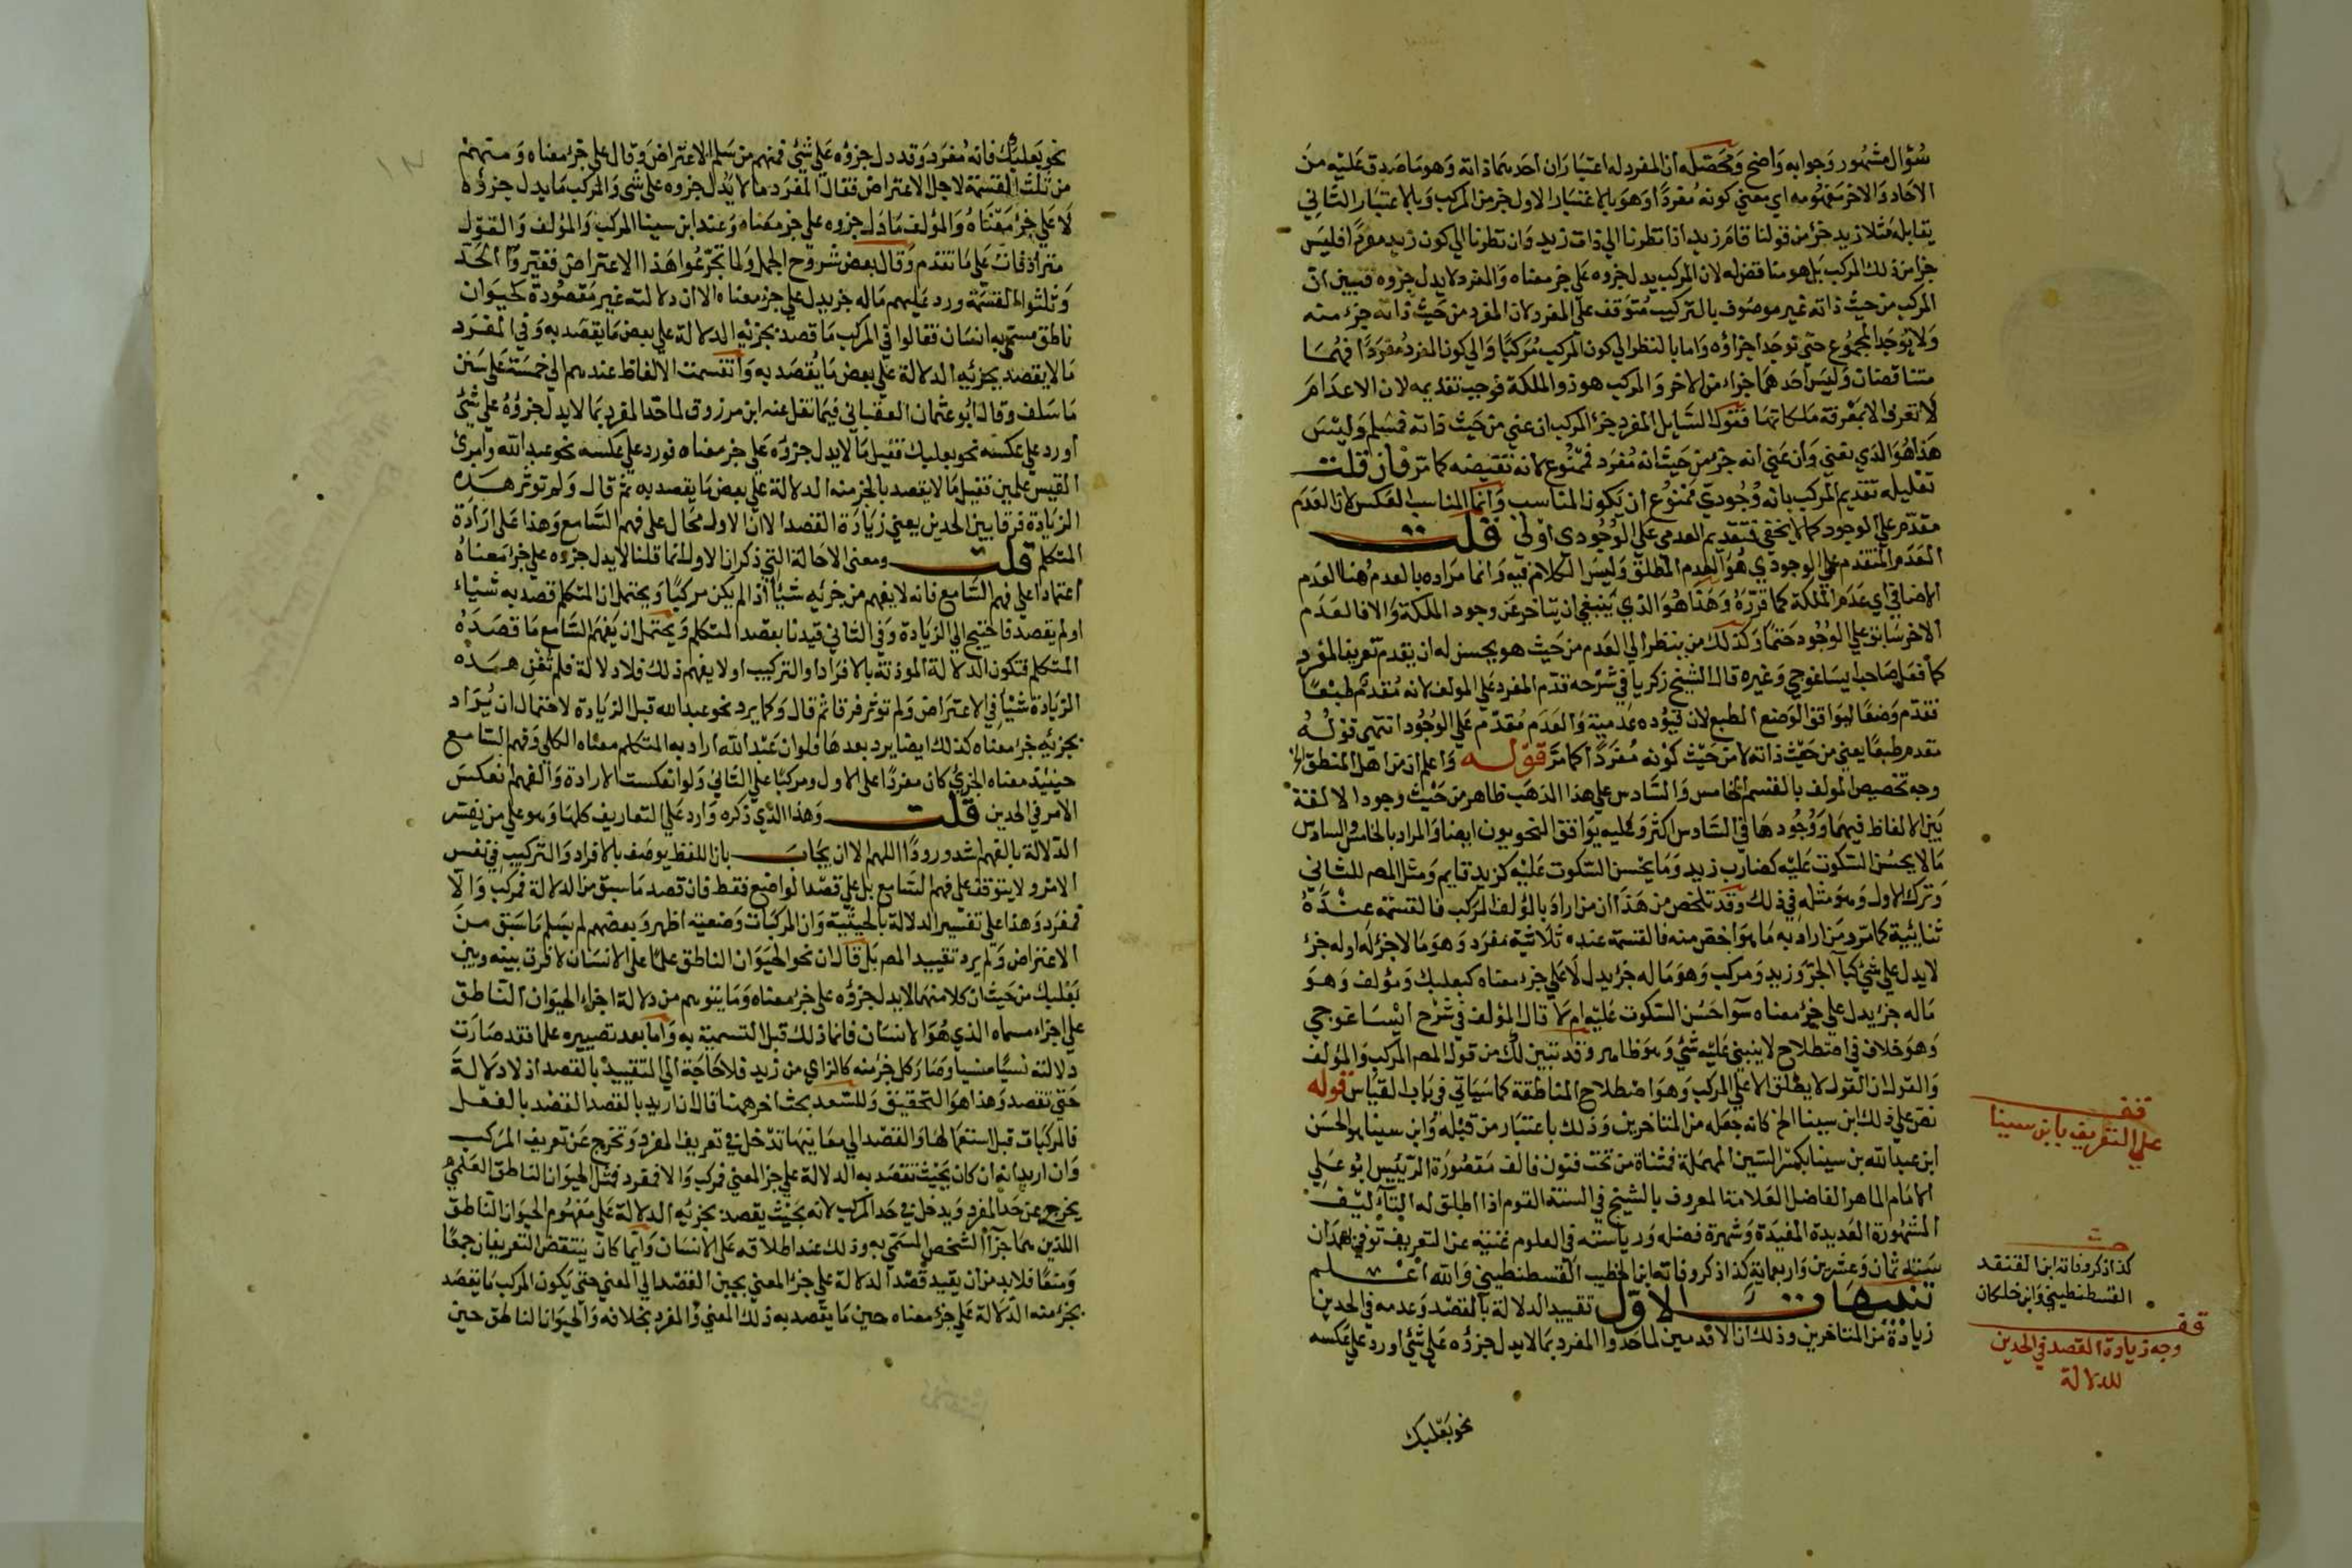 سؤال مشهور وجوابه واضح ومحصله ان المفرد له اعتباران احدهما ذاته وهو ما صدق عليه من
الاحاد والاخر مفهومه اي بعني كونه مفردا وهو بالاعتبار الاول جزء من المركب وبالاعتبار الثاني
يقابله مثلا زيد جزء من قولنا قام زيد اذا نظرنا الي ذات زيد وان نظرنا الي كون زيد مفردا فليس
جزا من ذلك المركب بل هو مناقض له لان المركب يدل جزوه علي جزء معناه والمفرد لا يدل جزوه فتبين ان
المركب من حيث ذاته غير موصوف بالتركيب متوقف علي المفرد لان المفرد من حيث ذاته جزء منه
ولا يوجد المجموع حتي توجد اجزاؤه واما بالنظر الي كون المركب مركبا والي كون المفرد مفردا فهما
متناقضان وليس احدهما جزاء من الاخر والمركب هو ذو الملكة فوجب تقديمه لان الاعدام
لا تعرف الا بمعرفة ملكاتها فقول السايل المفرد جزء المركب ان عني من حيث ذاته فمسلم وليس
هذا هو الذي نعني وان عني انه جزء من حيث انه مفرد فممنوع لانه نقيضه كما مر فان قلت
تعليله تقديم المركب بانه وجودي ممنوع ان يكون المناسب وانما المناسب العكس لان العدم
مقدم علي الوجود كما لا يخفي فتقديم العدمي علي الوجودي اولي قلت
العدم المتقدم علي الوجودي هو العدم المطلق وليس الكلام فيه وانما مراده بالعدم هنا العدم
الاضافي اي عدم الملكة كما قررة وهذا هو الذي ينبغي ان يتاخر عن وجود الملكة والا فالعدم
الاخر سابق علي الوجود حتما وكذلك من ينظر الي العدم من حيث هو يحسن له ان يقدم تعريف المفرد
كما فعل صاحب ايساغوجي وغيره قال الشيخ زكريا في شرحه قدم المفرد علي المولف لانه مقدم طبعا
فقدم وضعا ليوافق الوضع الطبع لان قيوده عدمية والعدم مقدم علي الوجود انتهي قوله
تقدم طبعا يعني من حيث ذاته لا من حيث كونه مفردا كما مر قوله واعلم ان من اهل المنطق الخ
وجه تخصيص المولف بالقسم الخامس والسادس علي هذا المذهب ظاهر من حيث وجود الالفة
بين الالفاظ فيهما ووجودها في السادس اكثر وعليه يوافق النحويون ايضا والمراد بالخامس والسادس
ما لا يحسن السكوت عليه كضارب زيد وما يحسن السكوت عليه كزيد قايم ومثل المص للثاني
وترك الاول وهو مثله في ذلك وقد تلخص من هذا ان من اراد بالمؤلف المركب فالقسمة عنده
ثنائية كما مر ومن اراد به ما هو اخص منه فالقسمة عنده ثلاثية مفرد وهو ما لا جزء له او له جزء
لا يدل علي شئ كباء الجر وزيد ومركب وهو ما له جزء يدل لا علي جزء معناه كبعلبك ومؤلف وهو
ما له جزء يدل علي جزء معناه سوا حسن السكوت عليه ام لا قال المؤلف في شرح ايساغوجي
وهو خلاف في اصطلاح لا ينبني عليه شئ وهو ظاهر وقد تبين لك من قول المص المركب والمؤلف
والقول ان القول لا يطلق الا علي المركب وهو اصطلاح المناطقة كما سياتي في باب القياس قوله
نص علي ذلك ابن سينا الخ كانه جعله من المتاخرين وذلك باعتبار من قبله وابن سينا هو الحسن
ابن عبد الله بن سينا بكسر السين المهملة فمثناة من تحت فنون فالف مقصورة الرئيس ابو علي
الامام الماهر الفاضل العلامة المعروف بالشيخ في السنة القوم اذا اطلق له التآليف
المشهورة العديدة المفيدة وشهرة فضله ورياسته في العلوم غنية عن التعريف توفي بهمدان
سنة ثمان وعشرين واربعماية كذا ذكر وفاته ابن الخطيب القسطنطيني والله اعلم
تنبيهات الاول تقييد الدلالة بالقصد وعدمه في الحدين
زيادة من المتاخرين وذلك ان الاقدمين لما حدوا المفرد بما لا يدل جزؤه علي شئ اورد علي عكسه
نحو بعلبك
قف
علي التعريف بابن سينا
كذا ذكر وفاته ابن القنفد
القسطنطيني وابن خلكان
قف
وجه زيادة القصد في الحدين
للدلالة
نحو بعلبك فانه مفرد وقد دل جزؤه علي شئ فمنهم من سلم الاعتراض وقال علي جزء معناه ومنهم
من ثلث القسمة لاجل الاعتراض فقال المفرد ما لا يدل جزوه علي شي والمركب ما يدل جزؤه
لا علي جزء معناه والمؤلف ما دل جزوه علي جزء معناه وعند ابن سينا المركب والمؤلف والقول
مترادفات علي ما تقدم وقال بعض شروح الجمل ولما تجرعوا هذا الاعتراض فغيروا الحد
وثلثوا القسمة ورد عليهم ما له جزء يدل علي جزء معناه الا ان دلالته غير مقصودة كحيوان
ناطق مسمي به انسان فقالوا في المركب ما قصد بجزئه الدلالة علي بعض ما يقصد به وفي المفرد
ما لا يقصد بجزئه الدلالة علي بعض ما يقصد به وانقسمت الالفاظ عندهم الي خمسة علي سنن
ما سلف وقال ابو عثمان العقباني فيما نقل عنه ابن مرزوق لما حد المفرد بما لا يدل جزؤه علي شئ
اورد علي عكسه نحو بعلبك فقيل ما لا يدل جزؤه علي جزء معناه فورد علي عكسه نحو عبد الله وامرئ
القيس علمين فقيل ما لا يقصد بالجزء منه الدلالة علي بعض ما يقصد به ثم قال ولم توثر هذه
الزيادة فرقا بين الحدين يعني زيادة القصد الا ان الاول محال علي فهم السامع وهذا علي ارادة
المتكلم قلت ومعني الاحالة التي ذكر ان الاول انما قلنا لا يدل جزوه علي جزء معناه
اعتمادا علي فهم السامع فانه لا يفهم من جزئه شيأ اذا لم يكن مركبا ويحتمل ان المتكلم قصد به شياء
او لم يقصد فاحتيج الي الزيادة وفي الثاني قيدنا بقصد المتكلم ويحتمل ان يفهم السامع ما قصده
المتكلم فتكون الدلالة الموذنة بالافراد او التركيب او لا يفهم ذلك فلا دلالة فلم تغن هذه
الزيادة شيأ في الاعتراض ولم توثر فرقا ثم قال وكما يرد نحو عبد الله قبل الزيادة لاحتمال ان يراد
بجزئه جزء معناه كذلك ايضا يرد بعدها فلو ان عبد الله اراد به المتكلم معناه الكلي وفهم السامع
حينيذ معناه الجزئ كان مفردا علي الاول ومركبا علي الثاني ولو انعكست الارادة والفهم انعكس
الامر في الحدين قلت وهذا الذي ذكره وارد علي التعاريف كلها وهو علي من يفسر
الدلالة بالفهم اشد ورودا اللهم الا ان يجاب بان اللفظ يوصف بالافراد والتركيب في نفس
الامر ولا يتوقف علي فهم السامع بل علي قصد الواضع فقط فان قصد ما سبق من الدلالة فمركب والا
فمفرد وهذا علي تفسير الدلالة بالحيثية وان المركبات وضعية اظهر وبعضهم لم يسلم ما سبق من
الاعتراض ولم يرد تقييد المص بل قال ان نحو الحيوان الناطق علما علي الانسان لا فرق بينه وبين
بعلبك من حيث ان كلا منهما لا يدل جزؤه علي جزء معناه وما يتوهم من دلالة اجزاء الحيوان الناطق
علي اجزاء مسماه الذي هو الانسان فانما ذلك قبل التسمية به واما بعد تصييره علما فقد صارت
دلالته نسيا منسيا وصار كل جزء منه كالزاي من زيد فلا حاجة الي التقييد بالقصد اذ لا دلالة
حتي تقصد وهذا هو التحقيق وللسعد بحث اخر هنا قال ان اريد بالقصد القصد بالفعل
فالمركبات قبل استعمالها والقصد الي معانيها تدخل في تعريف المفرد وتخرج عن تعريف المركب
وان اريد انه ان كان بحيث تقصد به الدلالة علي جزء المعني فمركب والا فمفرد فمثل الحيوان الناطق العلم
يخرج عن حد المفرد ويدخل في حد المركب لانه بحيث يقصد بجزئه الدلالة علي مفهوم الحيوان الناطق
اللذين هما جزآ الشخص المسمي به وذلك عند اطلاقه علي الانسان وايا ما كان ينتقض التعريفان جمعا
ومنعا فلا بد من ان يقيد قصد الدلالة علي جزء المعني بحين القصد الي المعني حتي يكون المركب ما يقصد
بجزء منه الدلالة علي جزء معناه حين ما يقصد به ذلك المعني والمفرد بخلافه والحيوان الناطق حين